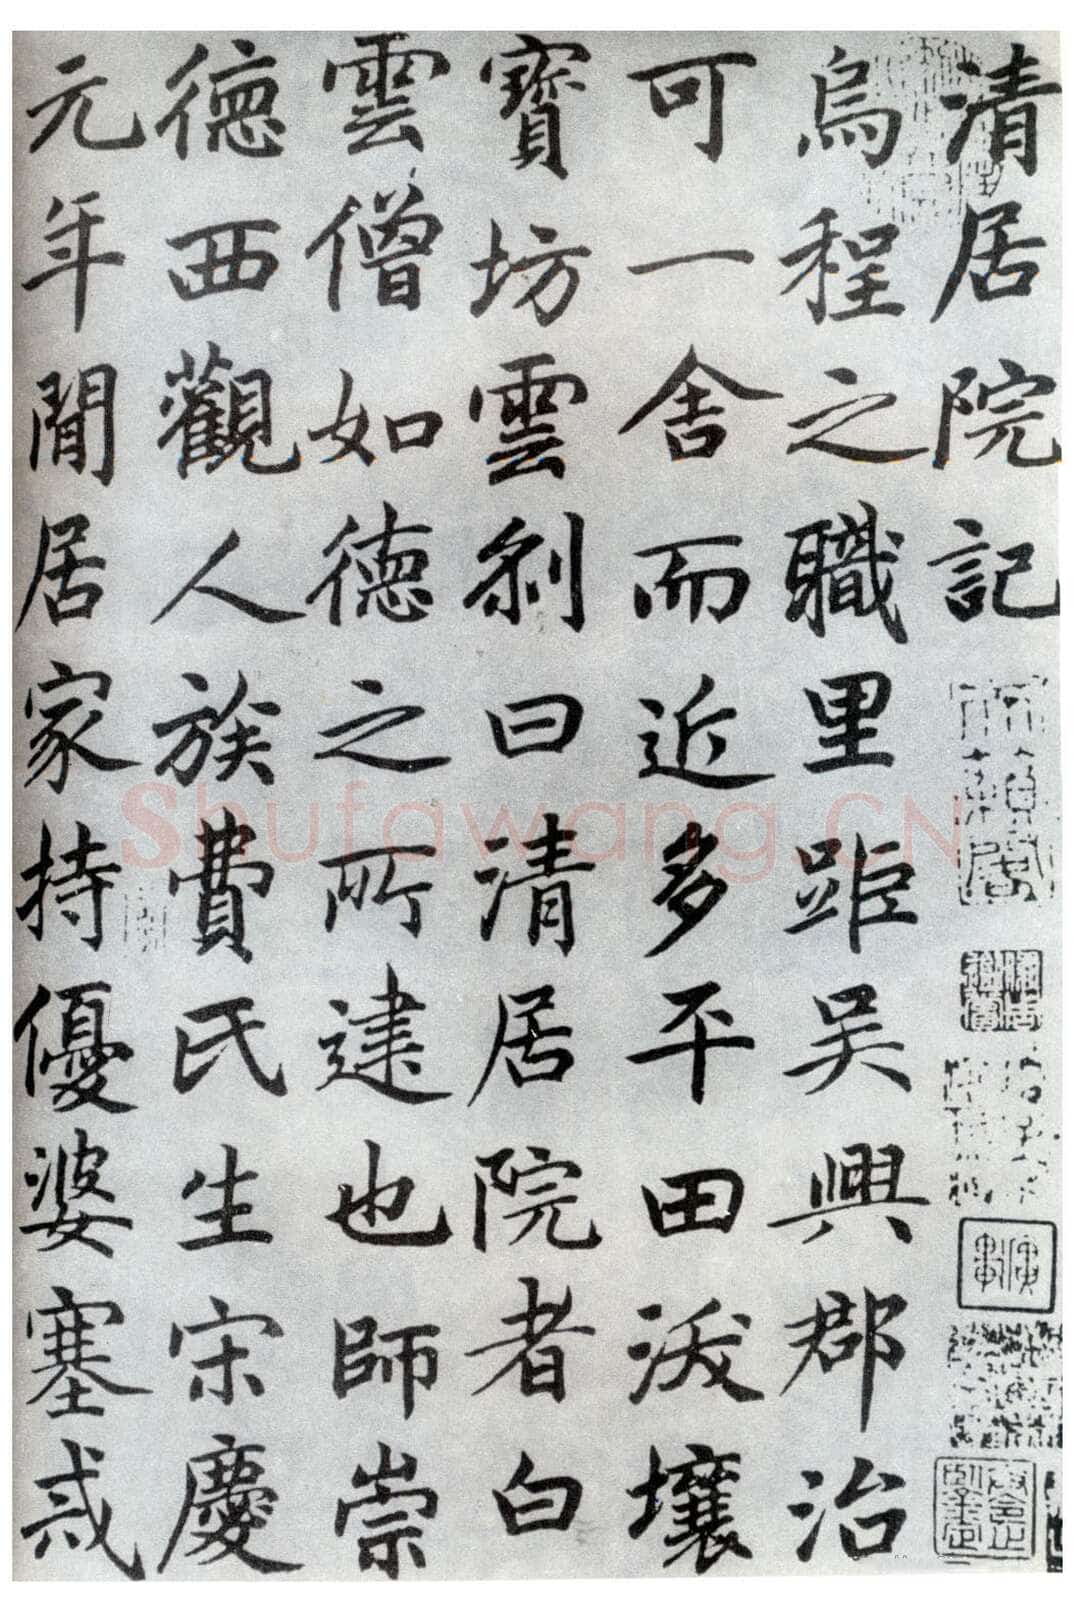 清居院記
烏程之職里歫吳興郡治
可一舍而近多平田沃壤
寶坊雲刹曰清居院者白
雲僧如德之所建也師崇
德西觀人族費氏生宋慶
元年間居家持優婆塞戒
Shufawang.CN